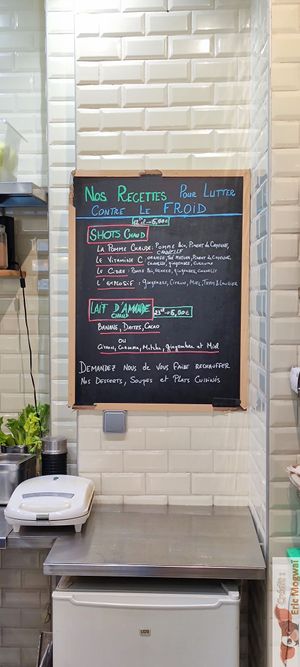 Nos Recettes Pour Lutter
Contre Le FROID
Shots Chaud
La Pomme Chaude: Pomme Bio, Piment de Cayenne,
Cannelle
Le Vitamine C
Cannelle, gingembre, Curcuma
Le Cidre: Pomme Bio, gingembre, Cannelle
L'Explosif: gingembre, Citron, Miel, Thym & Laurier
Lait d'Amande
Chaud
Banane, Dattes, Cacao
ou
Citron, Curcuma, Matcha, gingembre et Miel
Demandez Nous de Vous Faire Rechauffer
Nos Desserts, Soupes et Plats Cuisinés
Crédits :
Eric Mogwai